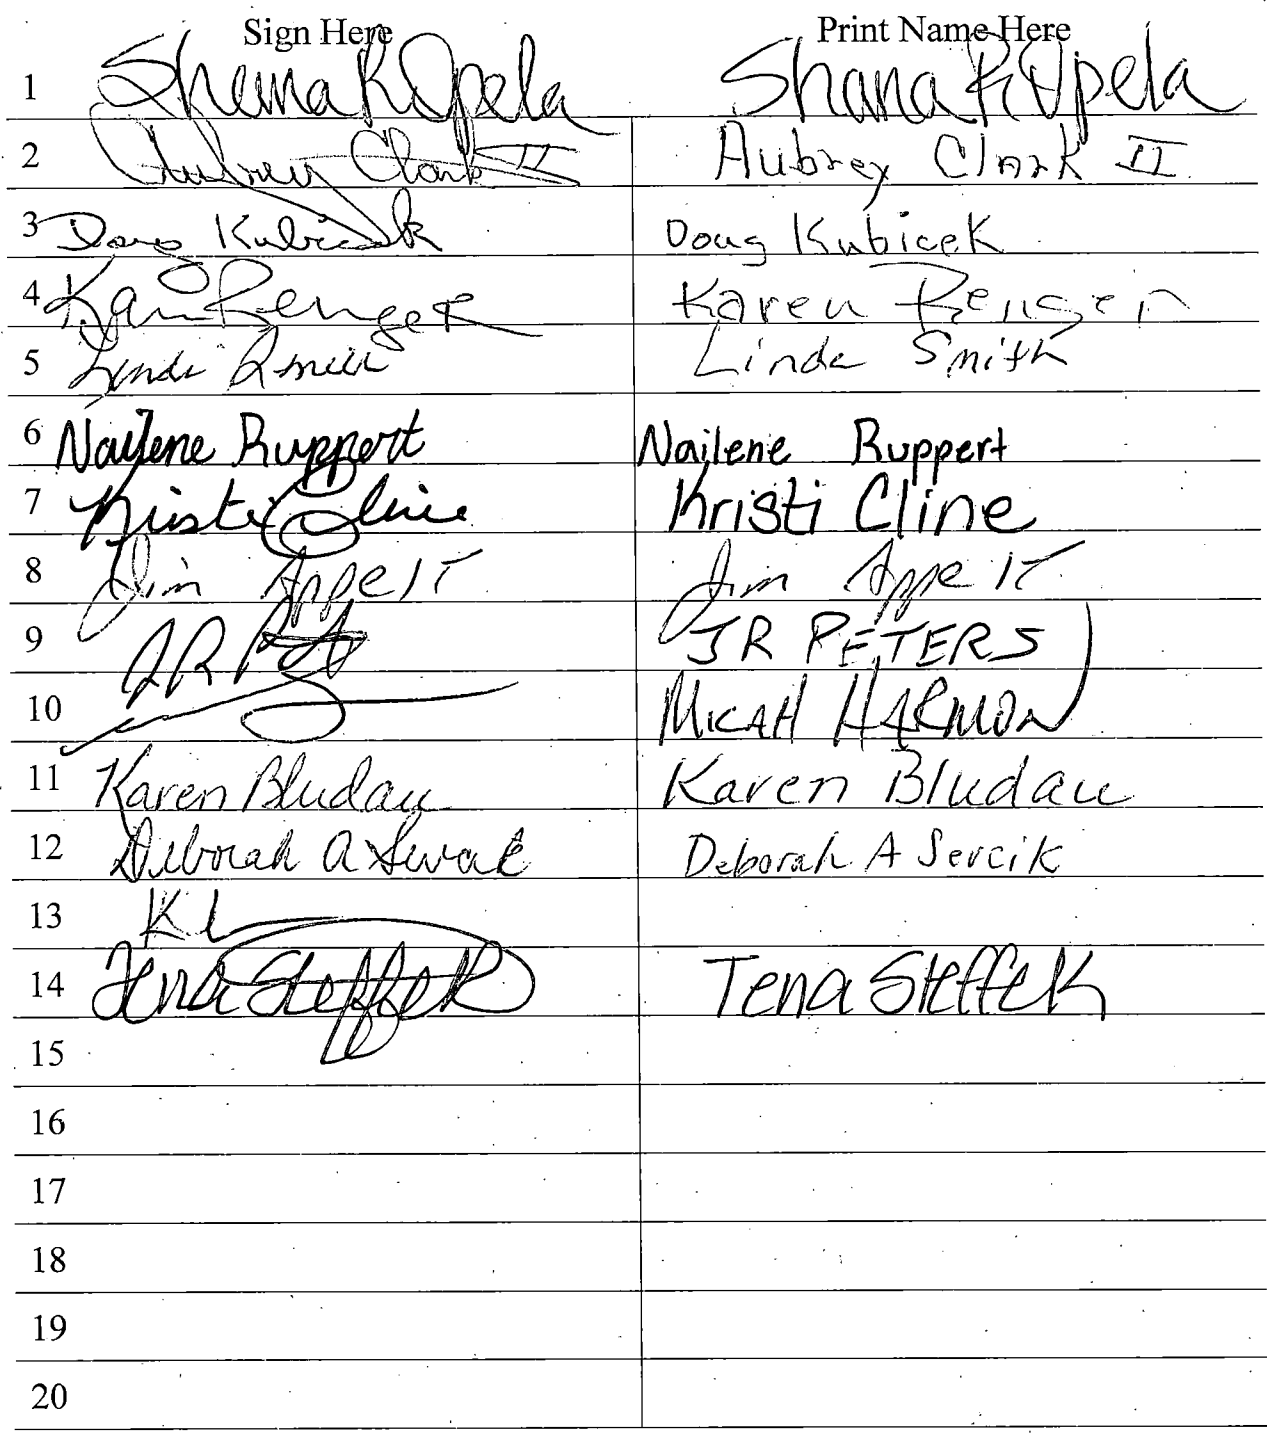 Sign Here Print Name Here
1 Shana R Opela Shana R Opela
2 Aubrey Clark II Aubrey Clark II
3 Doug Kubicek Doug Kubicek
4 Karen Renger Karen Renger
5 Linda Smith Linda Smith
6 Nailene Ruppert Nailene Ruppert
7 Kristi Cline Kristi Cline
8 Jim Appelt Jim Appelt
9 JR JR PETERS
10 MICAH HARMON
11 Karen Bludau Karen Bludau
12 Deborah A Deborah A Sevcik
13 K L
14 Tena Steffek Tena Steffek
15
16
17
18
19
20